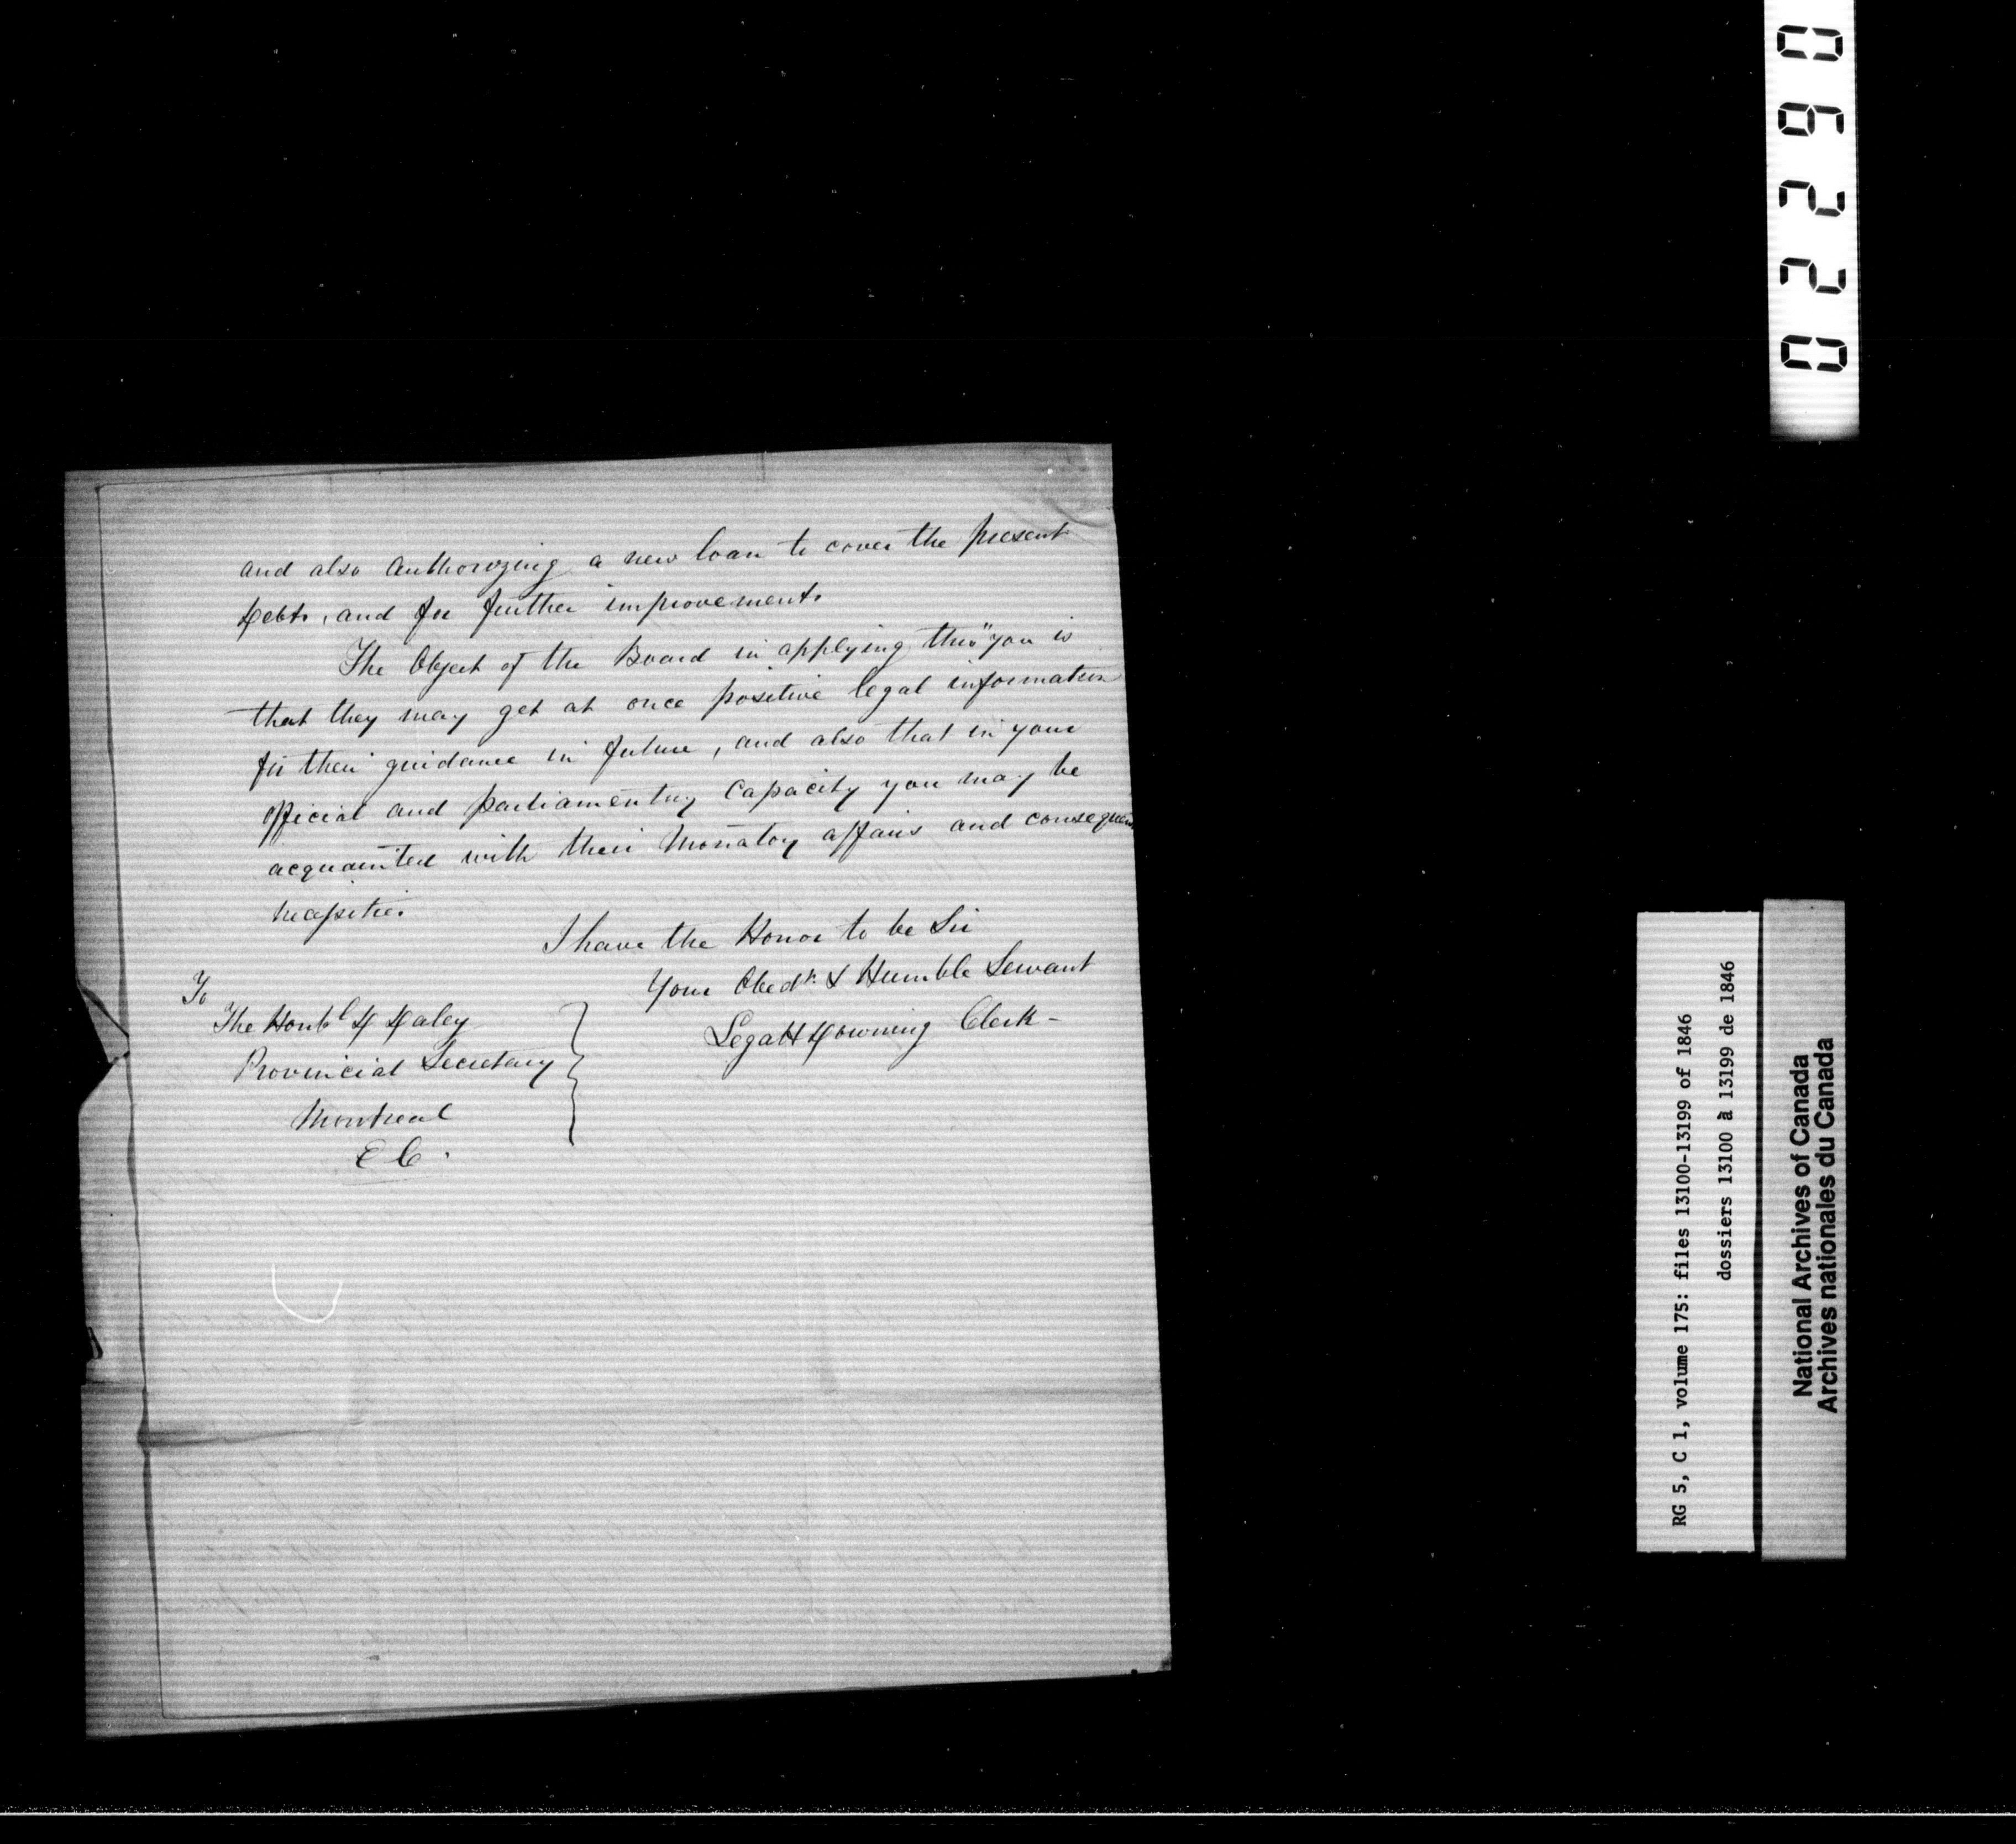 and also Authorizing a new loan to cover the present
Debts, and for further improvements
The Object of the Board in applying thus you is
that they may get at once positive legal information
for their guidance in future, and also that in your
official and parliamentry Capacity you may be
acquainted with their Monatory affairs and consequent
necessities
I have the Honor to be Sir
Your Obedt. & Humble Servant
Legatt Downing Clerk -
To
The Honbl D Daley
Provincial Secretary
Montreal
C E.
RG 5, C 1, volume 175: files 13100-13199 of 1846
dossiers 13100 à 13199 de 1846
National Archives of Canada
Archives nationales du Canada